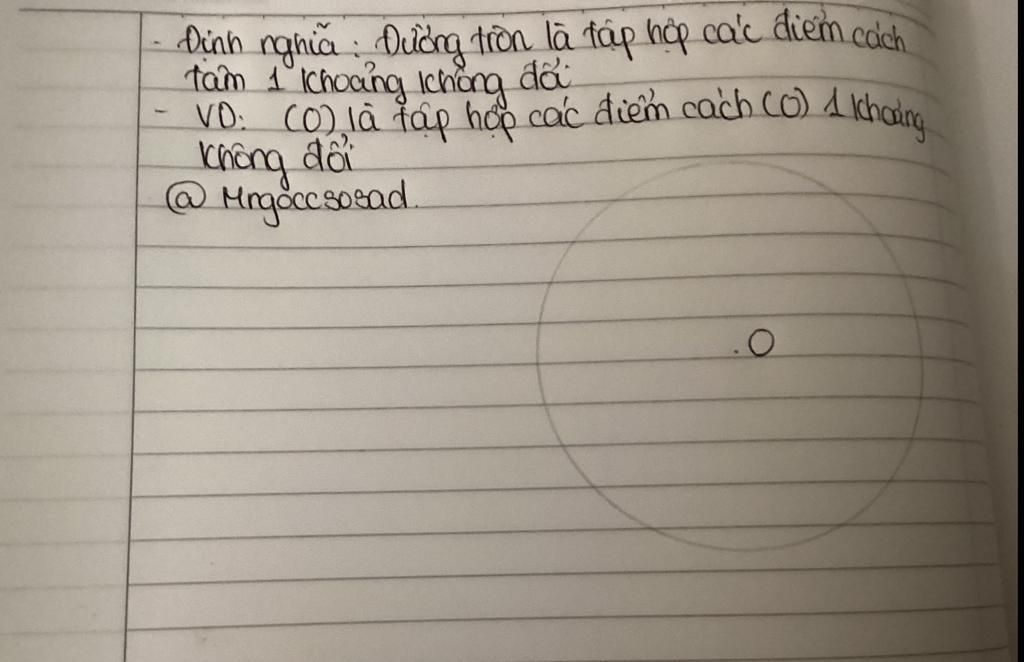 - Định nghĩa: Đường tròn là tập hợp các điểm cách
tâm 1 khoảng không đổi
- VD: (O) là tập hợp các điểm cách (O) 1 khoảng
không đổi
@ Mngoccsosad.
. O